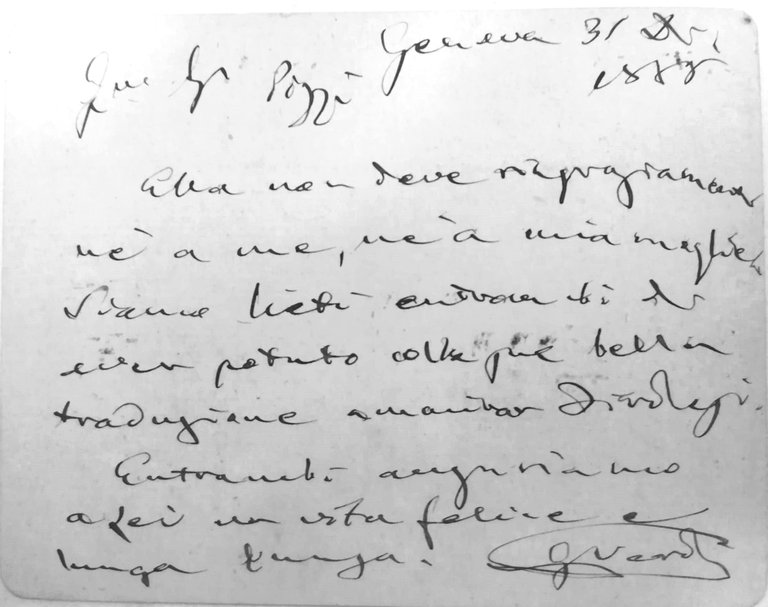 Genova 31 Dic.
188
Sigr Pizzi
Ella non deve ringraziamenti
nè a me, nè a mia moglie.
Siamo lieti entrambi di
aver potuto colla sua bella
traduzione ammirar Firdusi.
Entrambi auguriamo
a Lei una vita felice e
lunga lunga. G Verdi